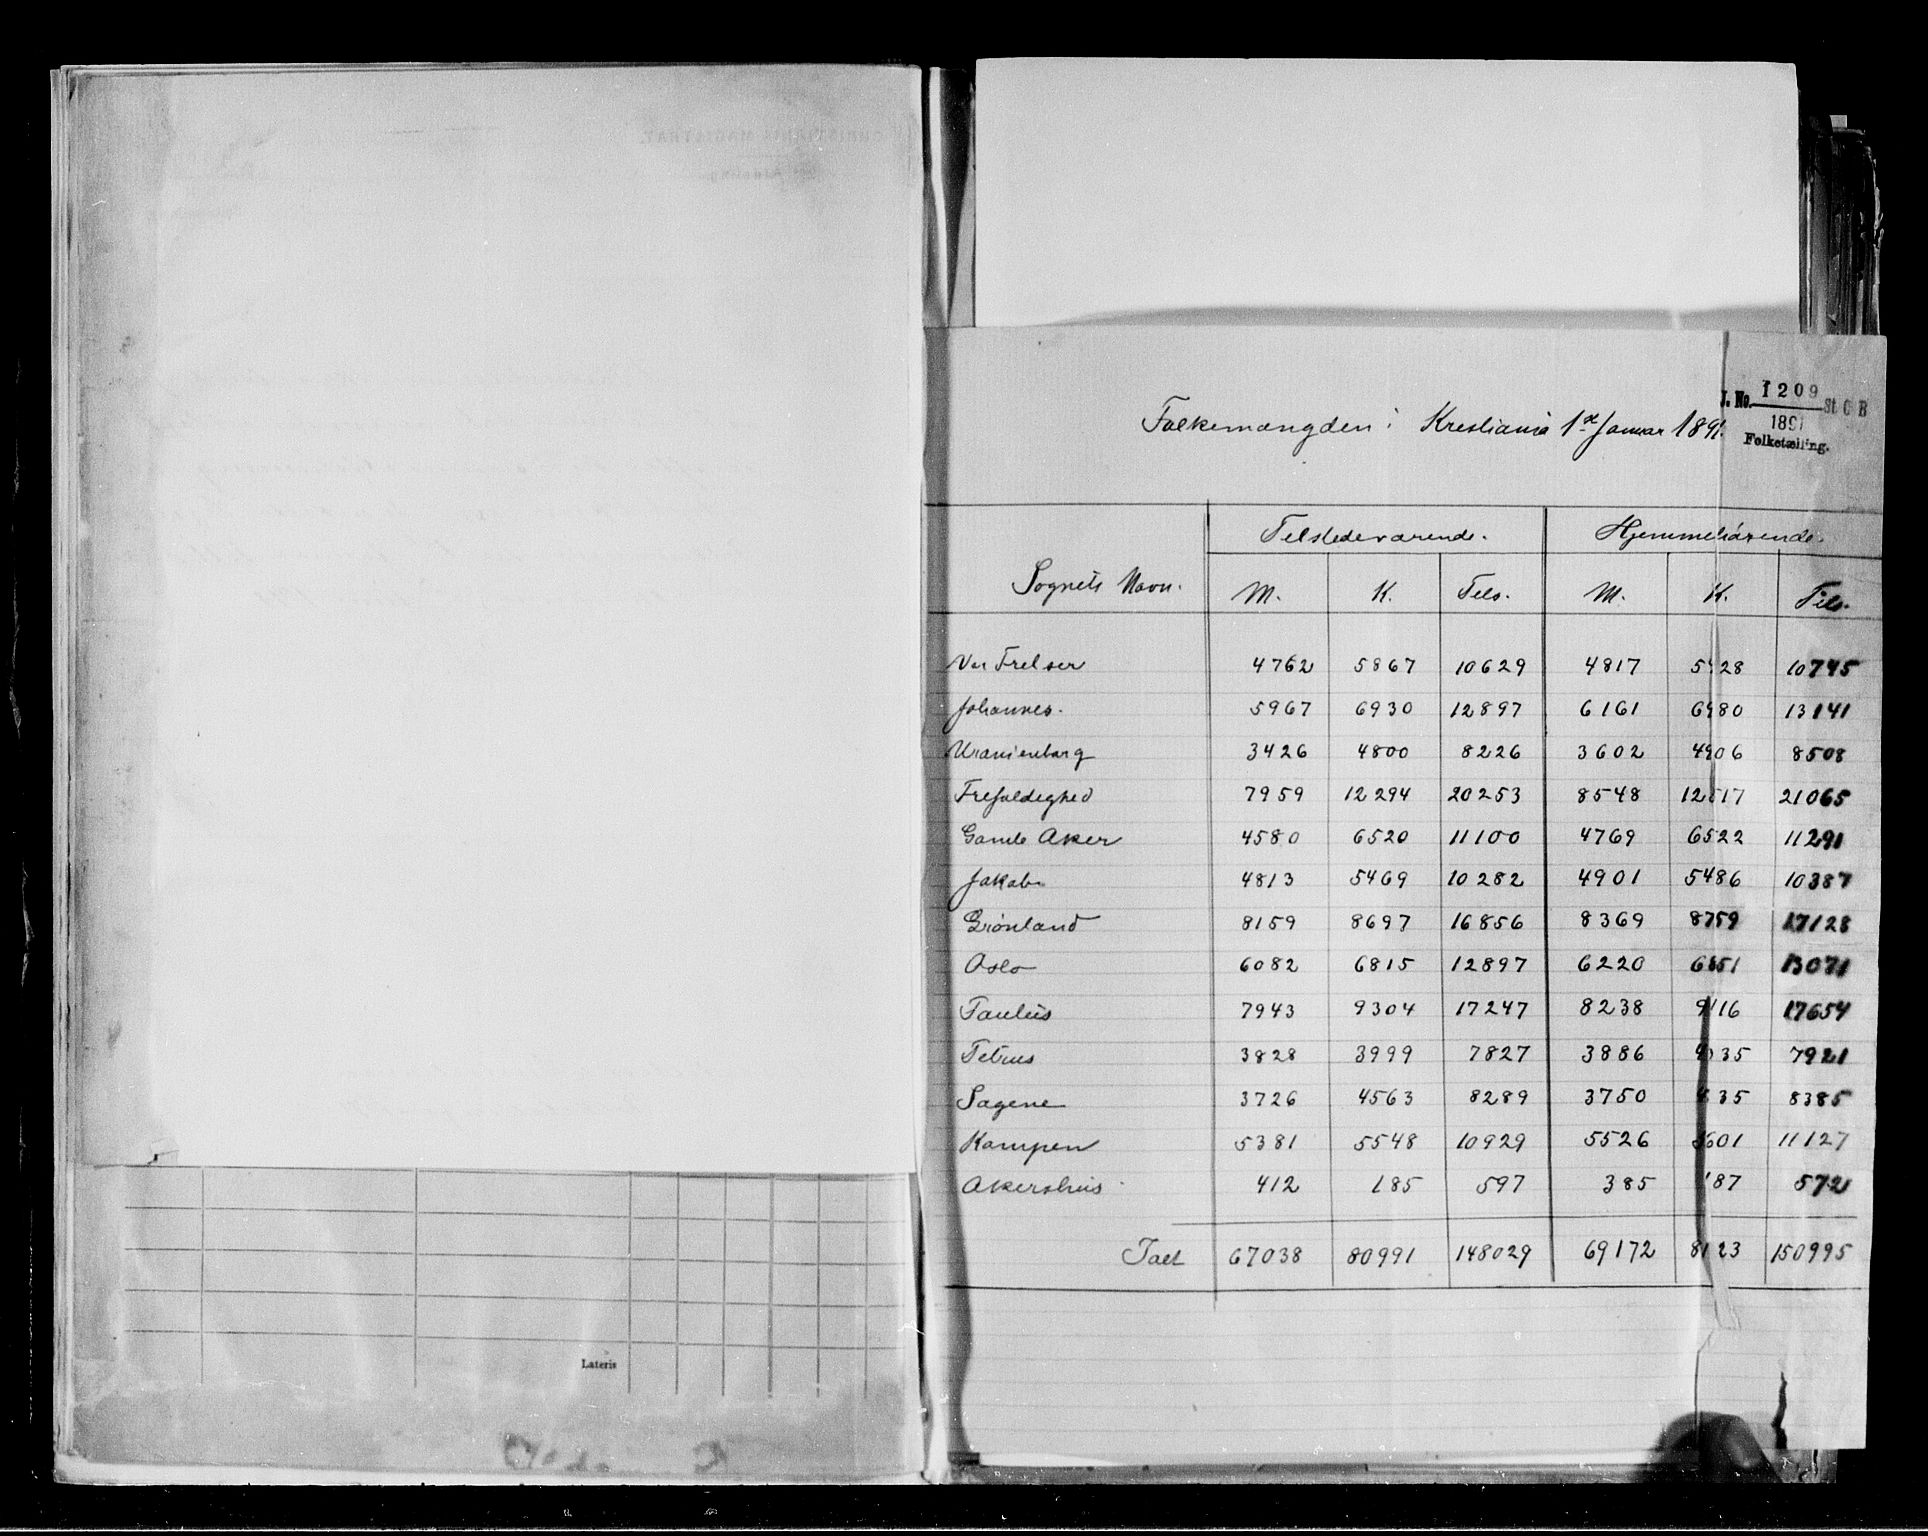 CHRISTIANIA MAGISTRAT.
Lateris
J. No. 1209 St. C B
1891
Folketælling.
Folkemængden i Kristiania 1ste Januar 1891.
Tilstedeværende. Hjemmehørende.
Sognets Navn. M. K. Tils. M. K. Tils.
Vor Frelser 4762 5867 10629 4817 5928 10745
Johannes. 5967 6930 12897 6161 6980 13141
Uranienborg 3426 4800 8226 3602 4906 8508
Trefoldighed 7959 12294 20253 8548 12517 21065
Gamle Aker 4580 6520 11100 4769 6522 11291
Jakob 4813 5469 10282 4901 5486 10387
Grønland 8159 8697 16856 8369 8759 17128
Oslo 6082 6815 12897 6220 6851 13071
Paulus 7943 9304 17247 8238 9416 17654
Petrus 3828 3999 7827 3886 4035 7921
Sagene 3726 4563 8289 3750 4635 8385
Kampen 5381 5548 10929 5526 5601 11127
Akershus 412 185 597 385 187 572
Talt 67038 80991 148029 69172 81823 150995